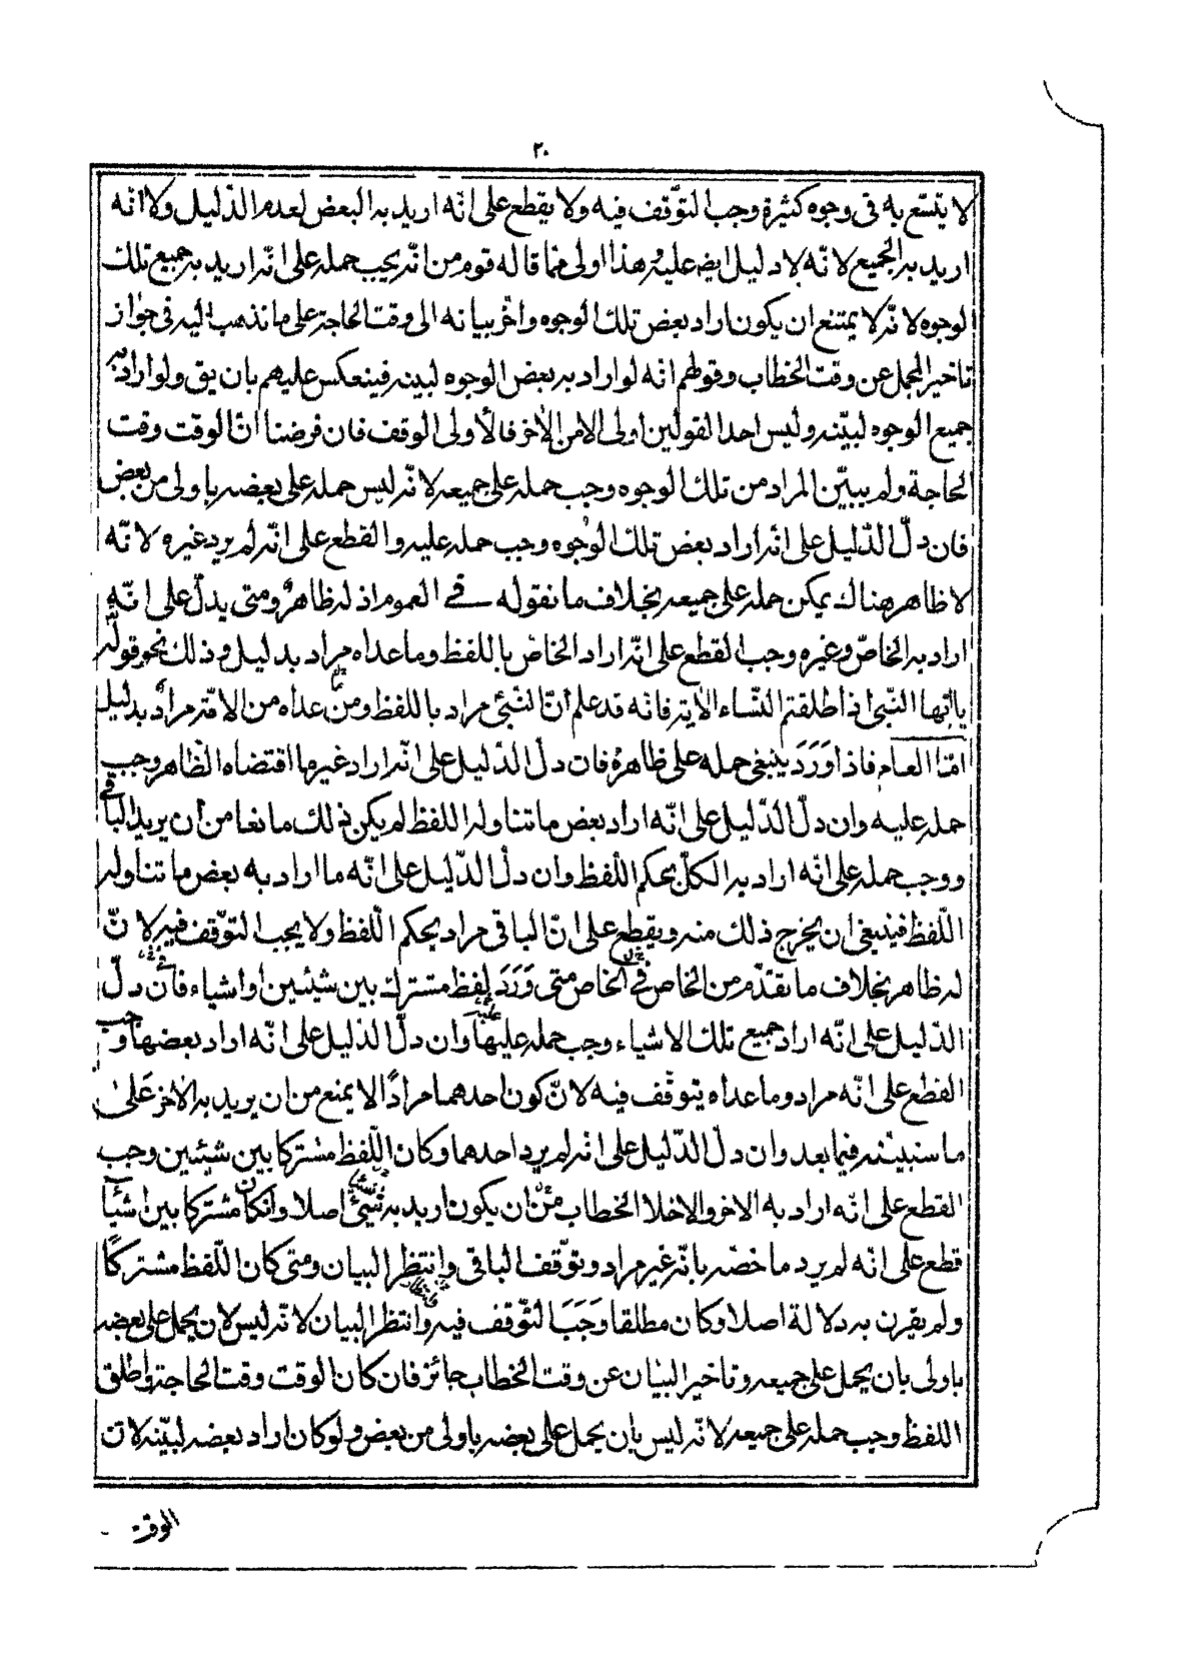 ٢٠
لا يتسع به فى وجوه كثيرة وجب التوّقف فيه ولا يقطع على انّه اريد به البعض لعدم الدّليل ولا انه
اريد به الجميع لانّه لا دليل ايضه عليه وهذا اولى ممّا قاله قوم من انّه يجب حمله على انّه اريد به جميع تلك
الوجوه لانّه لا يمتنع ان يكون اراد بعض تلك الوجوه واخّر بيانه الى وقت الحاجة على ما نذهب اليه فى جواز
تاخير المجمل عن وقت الخطاب وقولهم انه لو اراد به بعض الوجوه لبينه فينعكس عليهم بان يق ولو اراد به
جميع الوجوه لبيّنه وليس احد القولين اولى الامن الاخر فالأولى الوقف فان فرضنا انّ الوقت وقت
الحاجة ولم يبيّن المراد من تلك الوجوه وجب حمله على جميعه لانّه ليس حمله على بعضه باولى من بعض
فان دلّ الدّليل على انّه اراد بعض تلك الوجوه وجب حمله عليه والقطع على انّه لم يرد غيره لانّه
لا ظاهر هناك يمكن حمله على جميعه بخلاف ما نقوله فى العموم اذ له ظاهر ومتى يدلّ على انّه
اراد به الخاصّ وغيره وجب القطع على انّه اراد الخاصّ باللفظ وما عداه مراد بدليل وذلك نحو قوله
ياايّها النّبى اذا طلقتم النّساء الاية فانه قد علم انّ النّبىّ مراد باللفظ ومن عداه من الامّة مراد بدليل
امّا العام فاذا وَرَدَ ينبغى حمله على ظاهره فان دلّ الدّليل على انّه اراد غير ما اقتضاه الظّاهر وجب
حمله عليه وان دلّ الدّليل على انّه اراد بعض ما تناوله اللفظ لم يكن ذلك مانعا من ان يريد الباقى
ووجب حمله على انّه اراد به الكلّ بحكم اللّفظ وان دلّ الدّليل على انّه ما اراد به بعض ما تناوله
اللّفظ فينبغى ان يخرج ذلك منه ويقطع على انّ الباقى مراد بحكم اللّفظ ولا يجب التوّقف فيه لانّ
له ظاهر بخلاف ما تقدّم من الخاص فى الخاص متى وَرَدَ لفظ مشترك بين شيئين او اشياء فان دلّ
الدّليل على انّه اراد جميع تلك الاشياء وجب حمله عليها وان دلّ الدّليل على انّه اراد بعضها وجب
القطع على انّه مراد وما عداه يتوقّف فيه لانّ كون احدهما مرادًا لا يمنع من ان يريد به الاخر عَلىٰ
ما سنبيّنه فيما بعد وان دلّ الدّليل على انّه لم يرد احدهما وكان اللّفظ مشتركا بين شيئين وجب
القطع على انّه اراد به الاخر والاخلا الخطاب من ان يكون اريد به شىء اصلا وانكان مشتركا بين اشياء
قطع على انّه لم يرد ما خصّه بانّه غير مراد وتوّقف الباقى وانتظر البيان ومتى كان اللّفظ مشتركًا
ولم يقرن به دلالة اصلا وكان مطلقا وَجَبَ التوّقف فيه وانتظر البيان لانّه ليس لان يحمل على بعضه
باولى بان يحمل على جميعه وتاخير البيان عن وقت الخطاب جائز فان كان الوقت وقت الحاجة واطلق
اللفظ وجب حمله على جميعه لانّه ليس بان يحمل على بعضه باولى من بعض ولو كان اراد بعضه لبيّنه لانّ
الوقت